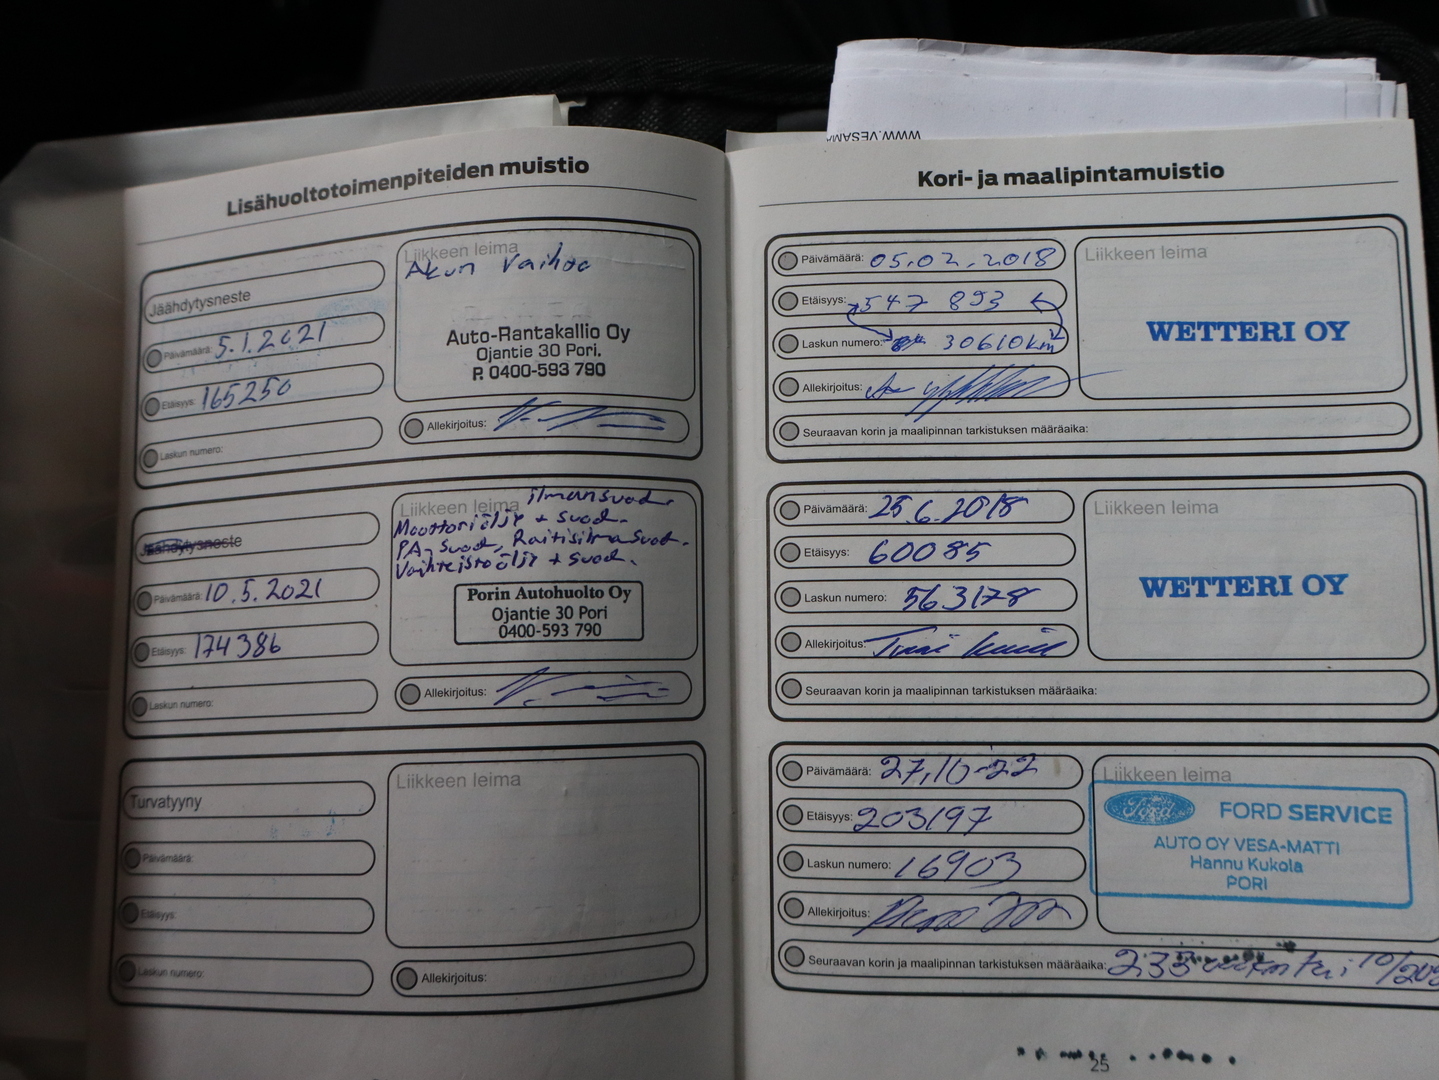 WWW.VESAMA
Lisähuoltotoimenpiteiden muistio
Jäähdytysneste
Päivämäärä: 5.1.2021
Etäisyys: 165250
Laskun numero:
Liikkeen leima
Akun Vaihto
Auto-Rantakallio Oy
Ojantie 30 Pori.
P. 0400-593 790
Allekirjoitus:
Jäähdytysneste
Päivämäärä: 10.5.2021
Etäisyys: 174386
Laskun numero:
Liikkeen leima ilmansuod.
Moottoriöljy + suod.
PA-suod, Raitisilmasuod.
Vaihteistoöljy + suod.
Porin Autohuolto Oy
Ojantie 30 Pori
0400-593 790
Allekirjoitus:
Turvatyyny
Päivämäärä:
Etäisyys:
Laskun numero:
Liikkeen leima
Allekirjoitus:
Kori- ja maalipintamuistio
Päivämäärä: 05.02.2018
Etäisyys: 547 893
Laskun numero: 30610km
Allekirjoitus:
Seuraavan korin ja maalipinnan tarkistuksen määräaika:
Liikkeen leima
WETTERI OY
Päivämäärä: 25.6.2018
Etäisyys: 60085
Laskun numero: 563178
Allekirjoitus:
Seuraavan korin ja maalipinnan tarkistuksen määräaika:
Liikkeen leima
WETTERI OY
Päivämäärä: 27,10-22
Etäisyys: 203197
Laskun numero: 16903
Allekirjoitus:
Seuraavan korin ja maalipinnan tarkistuksen määräaika: 233
Liikkeen leima
Ford FORD SERVICE
AUTO OY VESA-MATTI
Hannu Kukola
PORI
25